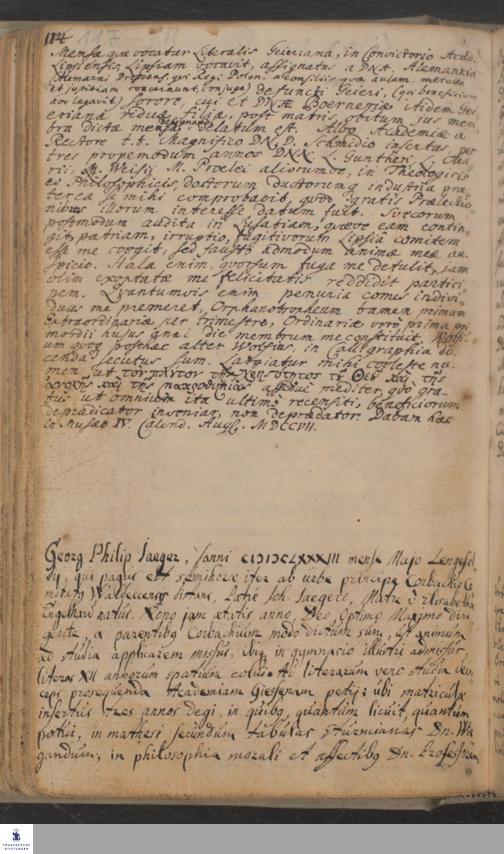 114
Mensæ quæ vocatur Literalis Geieriana, in Convictorio Acad.
Lipsiensis, Lipsiam vocavit, assignatus a DNA. Alemannia
(Alemanni Dresdens. qui Regi Polon. a consiliis quæ aulam, metalla
et justitiam concernunt, conjuge) defuncti Geieri, (qui beneficium
hoc legavit) Sorore, cui et DNÆ Boerneriæ itidem Gei
erianæ viduæ, filiæ, post matris obitum jus mem
bra dictæ mensæ delatum est. Albo Academiæ a
Rectore t. t. Magnifico DN. D. Schmidio insertus, per
tres propemodum annos DNN. L. Güntheri, L. Olea
rii, M. Weisii, M. Proelei aliorumve, in Theologicis
et Philosophicis, doctorum ductorumq industria præ
terea se mihi comprobavit, quod gratis Prælectio
nibus illorum interesse datum fuit. Svecorum
postmodum audita in Lusatiam, quæve eam contin
git, patriam, irruptio, fugitivorum Lipsia comitem
esse me coegit, sed faustis admodum animæ meæ au
spicio. Hala enim, quorsum fuga me detulit, jam
olim exoptatæ me felicitatis reddidit partici
pem. Quantumvis enim penuria comes indivi
duas me premeret, Orphanotropheum tamen primum
Extraordinariæ per trimestre, Ordinariæ verò prima pri
mordii hujus anni die membrum me constituit.
um quoq posthac alter spiritus, in Calligraphia do
cenda secutus sum. Largiatur mihi coeleste nu
men, ut
assidue mediter, quo gra
tus ut omnium ita ultimo recensiti, beneficiorum
deprædicator inveniar, non deprædator. Dabam hæc
in Musæo IV. Calend. Aug. MDCCVII.
Georg Philip Jaeger, Anni CIƆIƆCLXXXIII mense Majo Lengefel
dæ, qui pagus est semihoræ iter ab urbe principe Corbachio Co
mitatq Waldeccensis distans, Patre Joh. Jaegero, Matre v. Elisabetha
Engelhard natus. Nono jam ætatis anno, Deo, Optimo Maximo diri
gente, a parentibq Corbachium modo dictum sum, ut animum
ad studia applicarem missus, ibiq in gymnasio illustri admissus,
literas XII annorum spatium colui. Ad literarum vero studia dein
ceps prosequenda Academiam Giesenam petij: ubi matriculæ
insertus tres annos degi, in quibq, quantum licuit, quantum
potui, in mathesi secundum tabulas Sturmianas Dn. Wei
gandum, in philosophia morali et affectibq Dn. Professorem